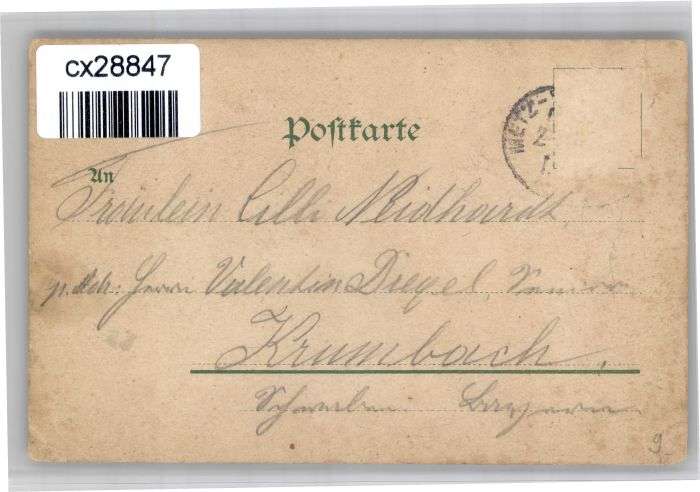 cx28847
Postkarte
METZ-
An
Fräulein Cilli Neidhardt,
p. Adr: Herrn Valentin Diegel, Senior
Krumbach,
Schwaben Bayern
9